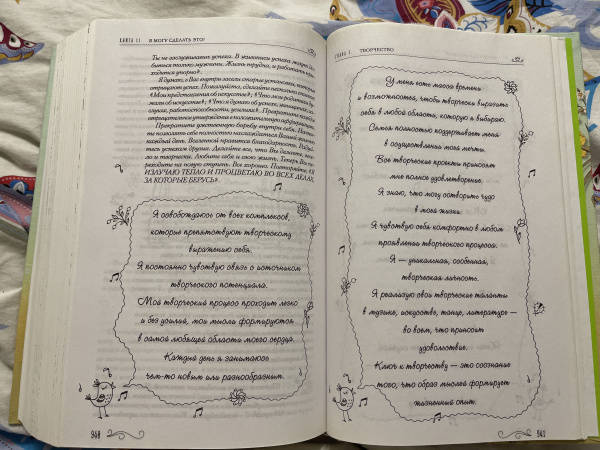 КНИГА II. Я МОГУ СДЕЛАТЬ ЭТО!
Ты не заслуживаешь успеха. В
быться только мужчины. Жизнь трудна, и работать
ходится упорно».
Я думаю, в Вас внутри засели старые установки, которые
отрицают успех. Пожалуйста, сделайте несколько
«Мои представления об искусстве»; «Что мои родители
мали об искусстве»; «Что я думаю об успехе,
слугах, работоспособности, усилиях». Превратите
отрицательное утверждение в положительную аффирмацию.
Прекратите умственную борьбу внутри себя.
те позволять себе полностью наслаждаться Вашей
каждый день. Вселенной нравится благодарность.
тесь успехам других. Делайте все, что Вы делаете,
но и творчески. Любите себя и свою жизнь. Теперь Вы
реходите на новую ступень. Все хорошо. Повторяйте: «Я
ИЗЛУЧАЮ ТЕПЛО И ПРОЦВЕТАЮ ВО ВСЕХ ДЕЛАХ,
ЗА КОТОРЫЕ БЕРУСЬ».
Я освобождаюсь от всех комплексов,
которые препятствуют творческому
выражению себя.
Я постоянно чувствую связь с источником
творческого потенциала.
Мой творческий процесс проходит легко
и без усилий, мои мысли формируются
в самой любящей области моего сердца.
Каждый день я занимаюсь
чем-то новым или разнообразным.
ГЛАВА 1. ТВОРЧЕСТВО
У меня есть масса времени
и возможностей, чтобы творчески выразить
себя в любой области, которую я выбираю.
Семья полностью поддерживает меня
в осуществлении моей мечты.
Все творческие проекты приносят
мне полное удовлетворение.
Я знаю, что могу сотворить чудо
в моей жизни.
Я чувствую себя комфортно в любом
проявлении творческого процесса.
Я — уникальная, особенная,
творческая личность.
Я реализую свои творческие таланты
в музыке, искусстве, танце, литературе —
во всем, что приносит
удовольствие.
Ключ к творчеству — это осознание
того, что образ мыслей формирует
жизненный опыт.